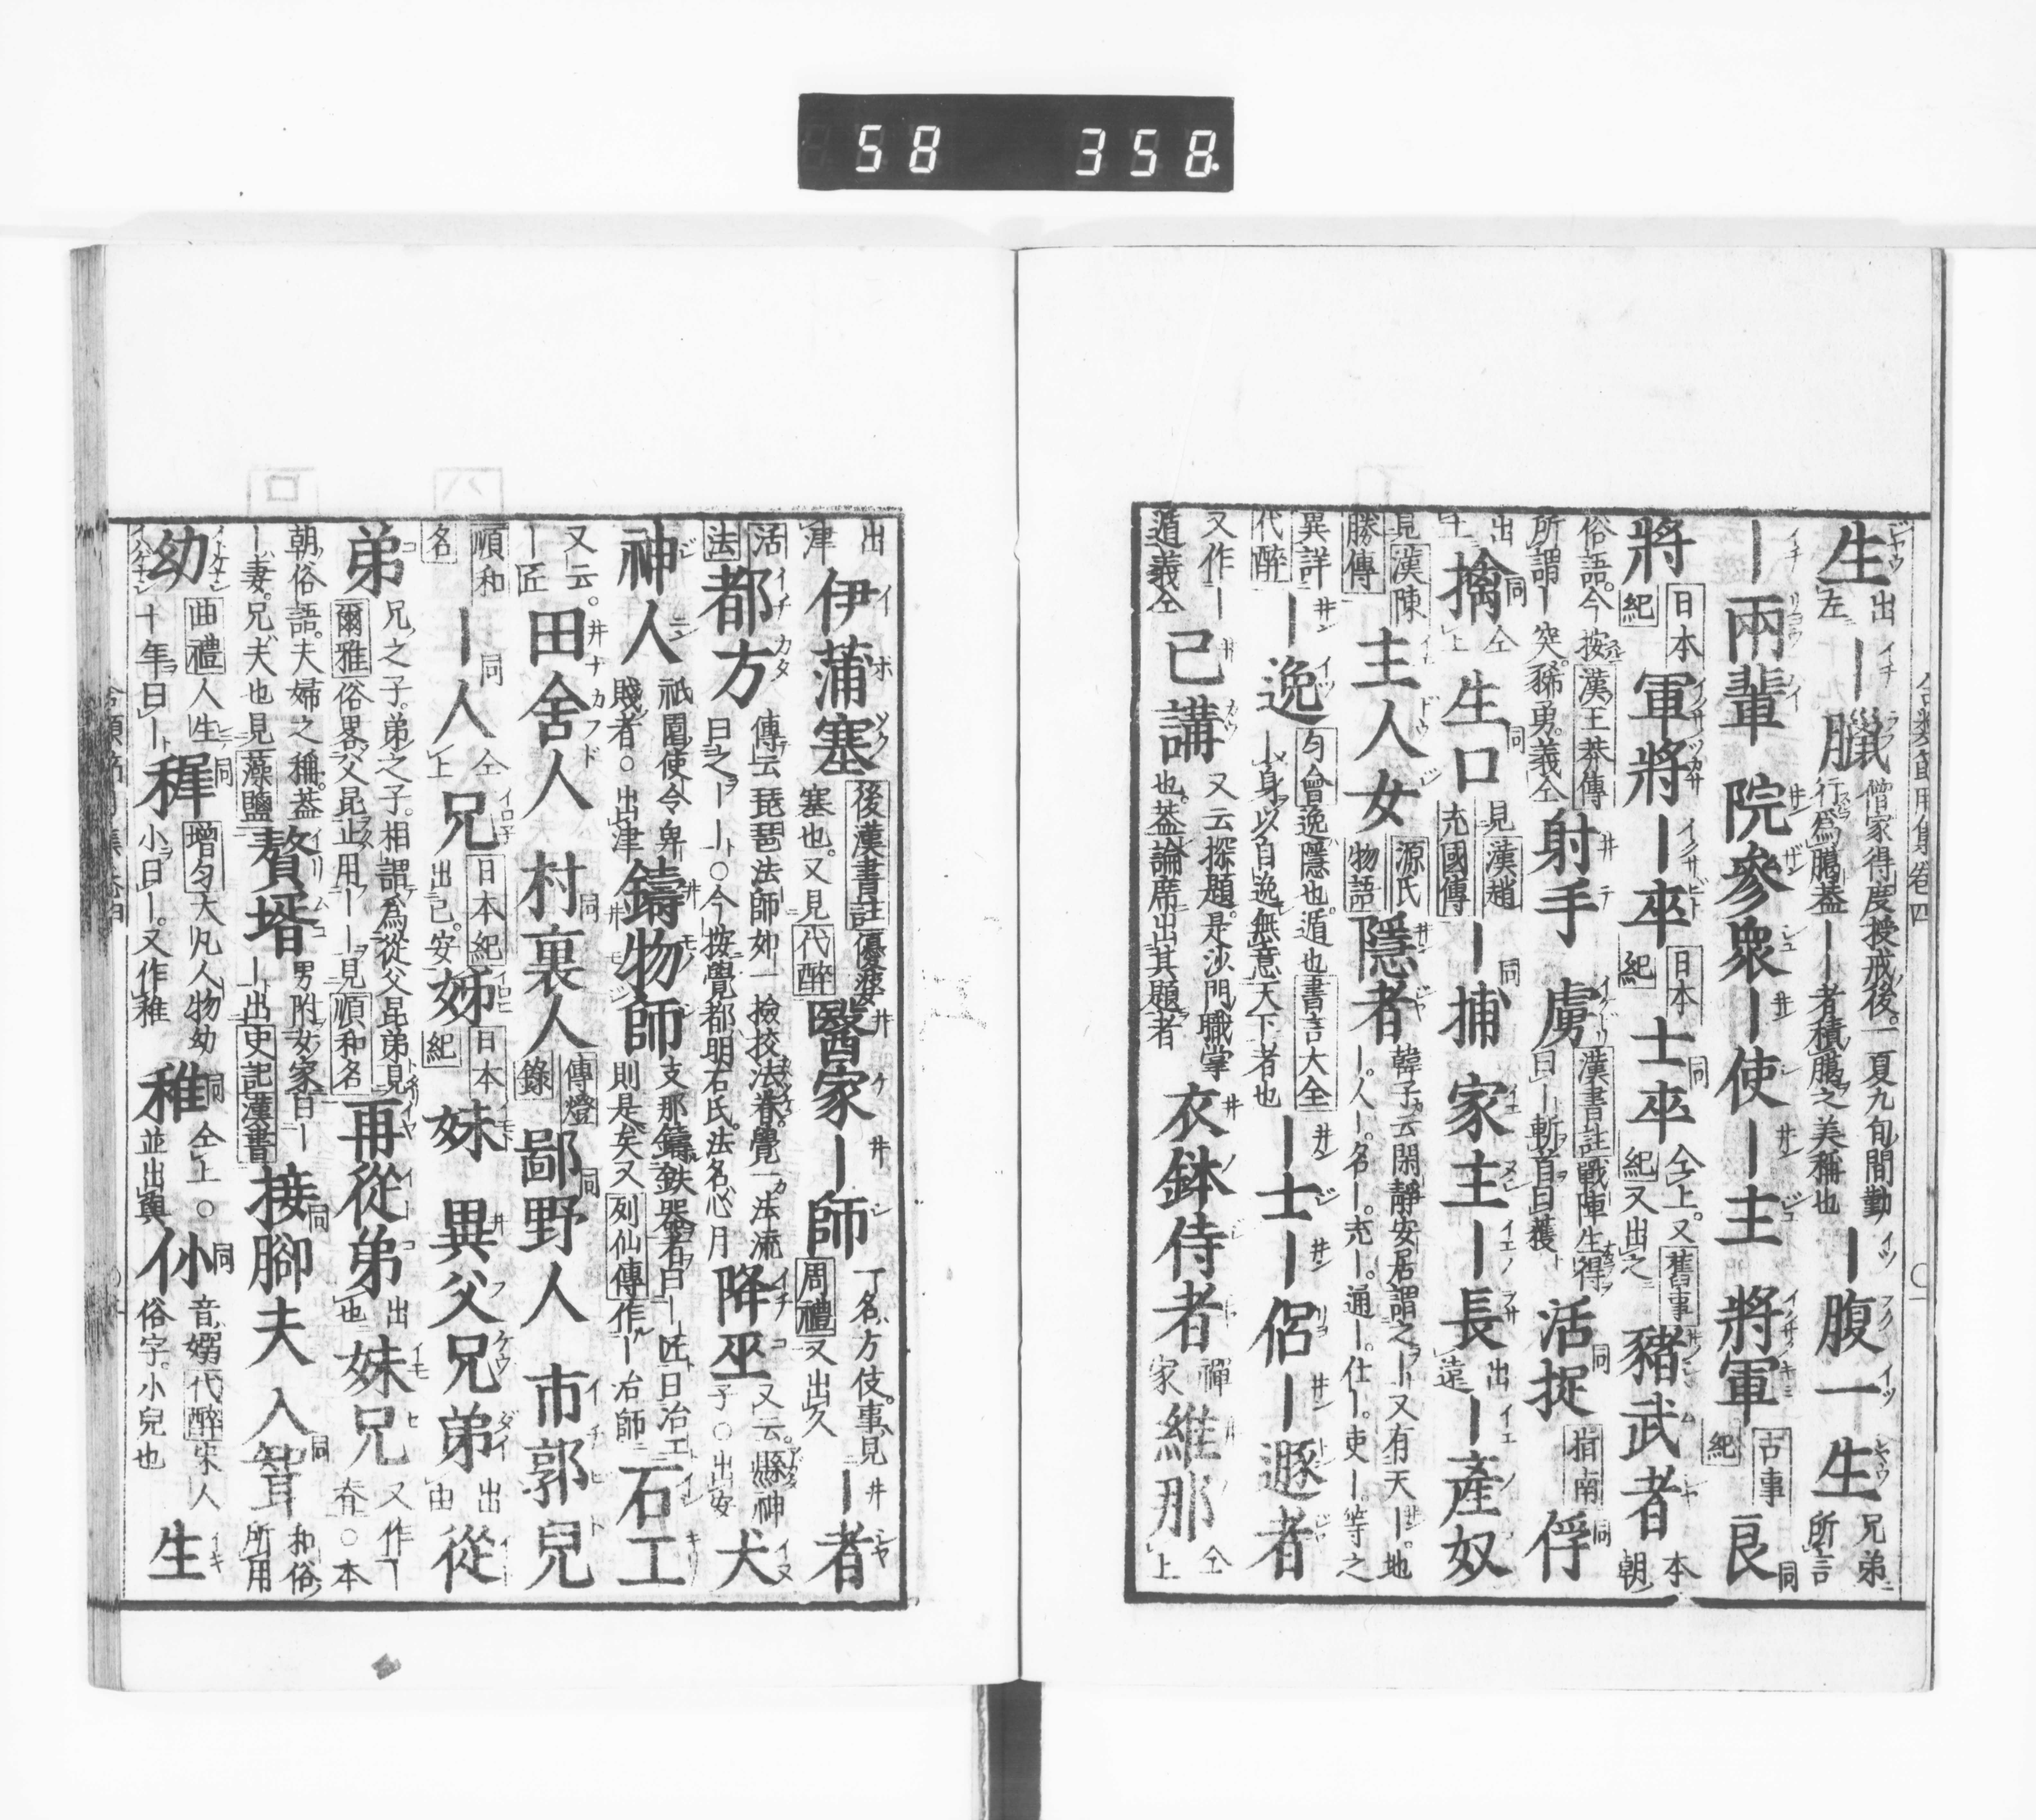 58 358
生 出左 ―臘 僧家得度授戒後一夏九旬間勤行爲臈蓋――者積臈之美稱也 ―腹一生 兄弟所言
―兩輩 院參衆 ―使 ―主 將軍 古事紀 良 同
將 日本紀 軍將 ―卒 日本紀 士卒 同 仝上又舊事紀又出之 豬武者 本朝
俗語今按漢王莽傳所謂―突豨勇義仝 射手 虜 漢書註戰陣生得曰―斬首曰獲 活捉 同 指南 俘 同
出上 擒 同 仝上 生口 同 見漢趙充國傳 ―捕 同 家主 ―長 出遠 ―產奴
見漢陳勝傳 主人女 源氏物語 隱者 韓子云閑靜安居謂之―又有天―地―人―名―充―通―仕―吏―等之
異詳代醉 ―逸 匀會逸隱也遁也書言大全―身以自逸無意天下者也 ―士 ―侶 ―遯者
又作―遁義仝 已講 又云探題是沙門職掌也蓋論席出其題者 衣鉢侍者 禪家 維那 仝上
合類節用集卷四
出津 伊蒲塞 後漢書註優婆塞也又見代醉 醫家 ―師 丁名方伎事見周禮又出久 ―者
活法 都方 傳云琵琶法師如一曰之――○今按覺都明石氏法名心月 降巫 又云縣神子○出安 犬
神人 祇園使令卑賤者○出津 鑄物師 支那鑄鉄器者曰―匠曰冶工則是矣又列仙傳作―冶師 石工
又云―匠 田舍人 村裏人 同 傳燈錄 鄙野人 同 市郭兒
順和名 ―人 同 仝上 兄 日本紀出己安 姊 日本紀 妹 異父兄弟 出由 從
弟 兄之子弟之子相謂爲從父昆弟見爾雅俗畧父昆止用――見順和名 再從弟 出也 妹兄 又作
朝俗語夫婦之稱蓋―妻兄夫也見藻鹽 贅壻 男附女家曰―出史記漢書 接腳夫 同 入聟 同 和俗所用
幼 曲禮人生十年曰― 穉 同 增匀大凡人物幼小曰―又作稚 稚 同 仝上○並出與 㑋 同 音嫋代醉宋人俗字小兒也 生